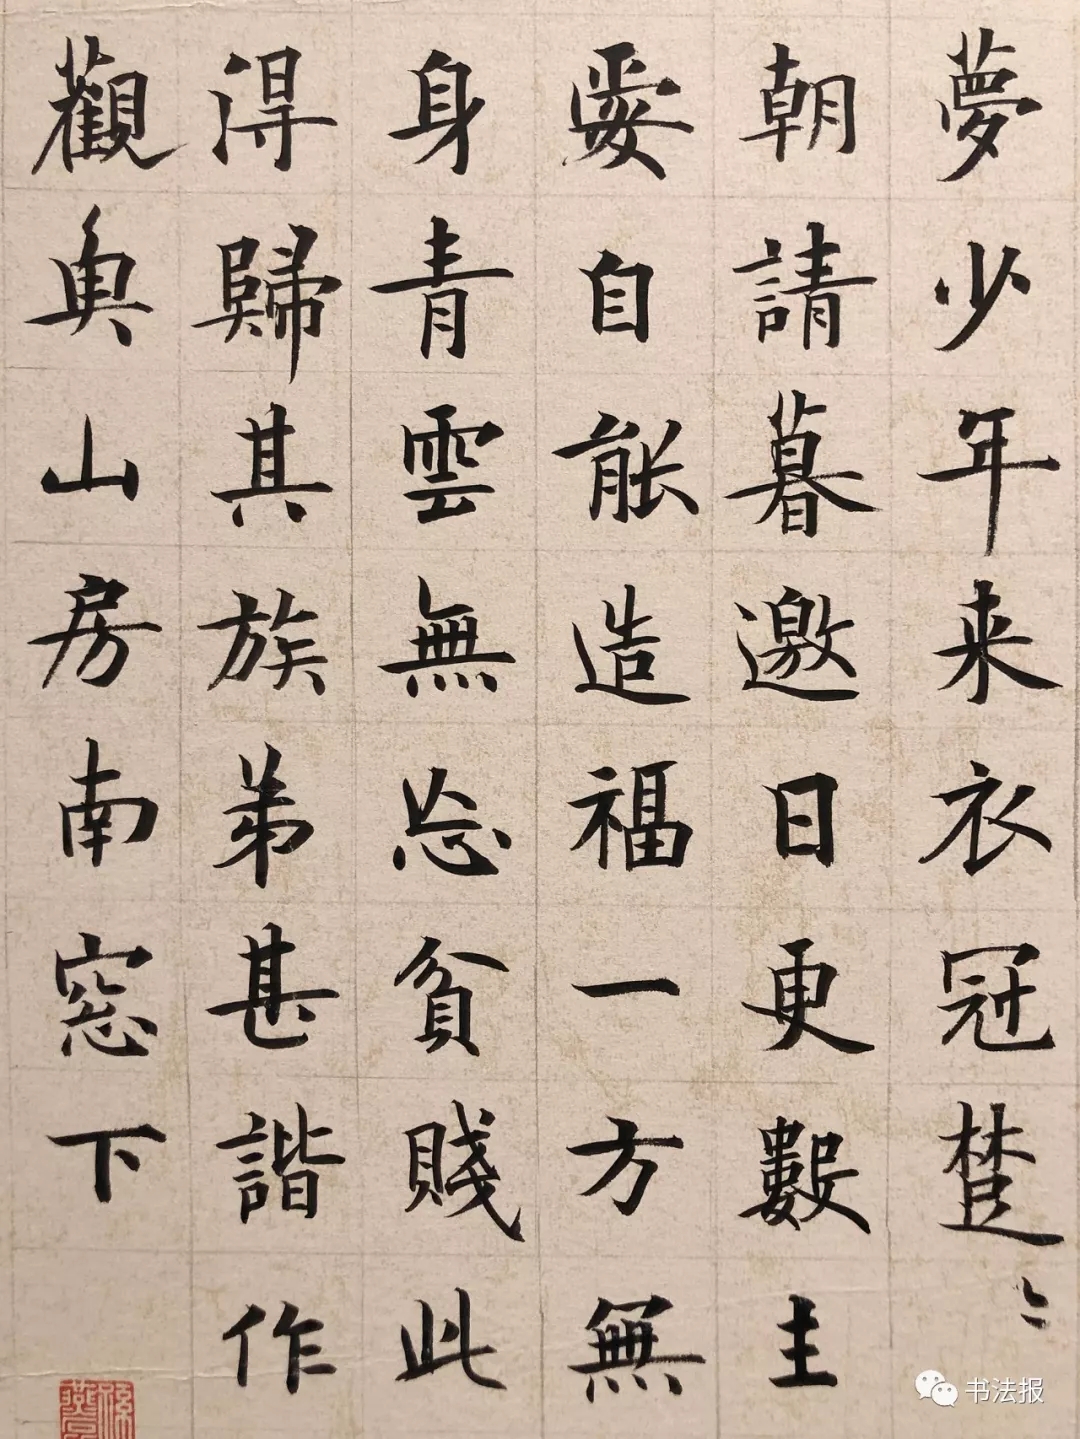 夢少年来衣冠楚〻
朝請暮邀日更數主
自能造福一方無
身青雲無忘貧賤此
得歸其族弟甚諧作
觀山房南窓下
书法报